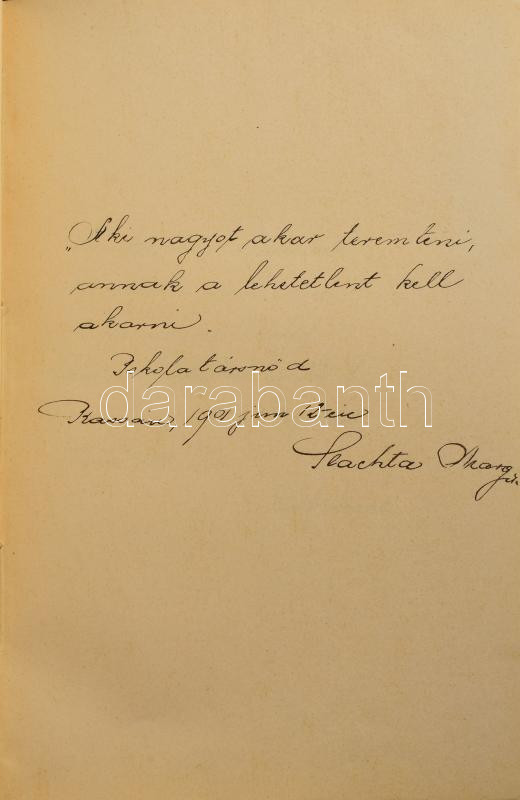 „Aki nagyot akar teremteni,
annak a lehetetlent kell
akarni.
Iskolatársnőd
darabanth
Kassán, 1901 jun
Slachta Margit